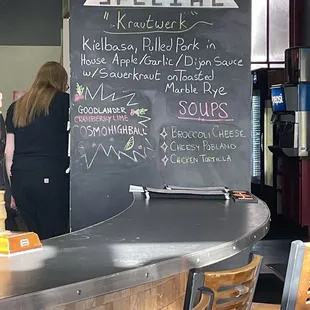 SPECIAL
"Krautwerk"
Kielbasa, Pulled Pork in
House Apple/Garlic/Dijon Sauce
w/Sauerkraut on Toasted
Marble Rye
GOODLANDER
CRANBERRY LIME
COSMO HIGHBALL
SOUPS
BROCCOLI CHEESE
CHEESY POBLANO
CHICKEN TORTILLA